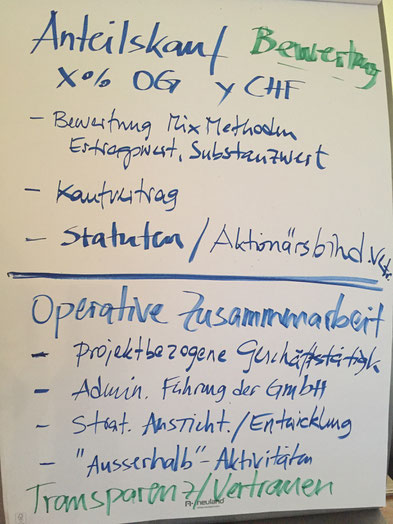 Anteilskauf Bewertung
X% OG y CHF
- Bewertung Mix Methoden
Ertragswert, Substanzwert
- Kaufvertrag
- Statuten / Aktionärsbind.Vertr.
Operative Zusammenarbeit
- Projektbezogene Geschäftstätigk
- Admin. Führung der GmbH
- Strat. Ausricht. / Entwicklung
- "Ausserhalb" - Aktivitäten
Transparenz / Vertrauen
neuland